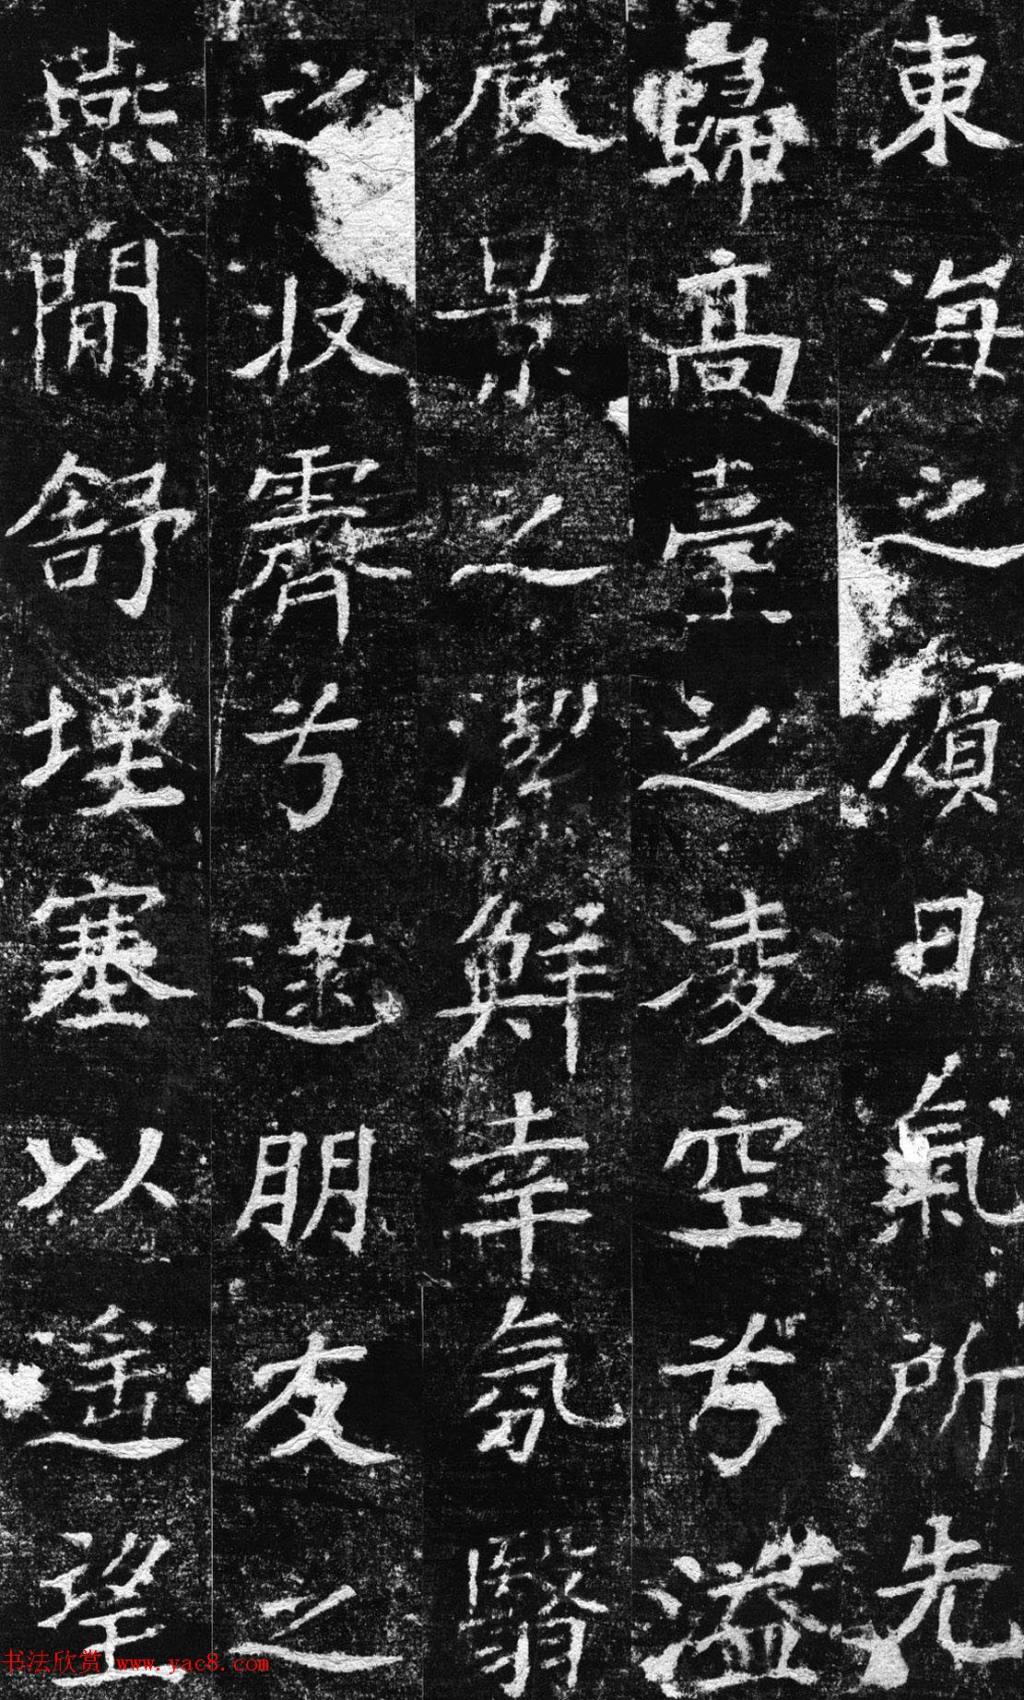 東海之濵日氣所先
歸高臺之凌空兮溢
晨景之潔鮮幸氛翳
之收霽兮逮朋友之
燕閒舒堙塞以遥望
书法欣赏 www.yac8.com